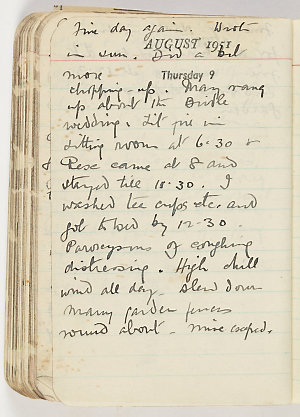 Fine day again. Wrote
AUGUST 1951
in sun. Did a bit
more Thursday 9
chopping up. Mary rang
up about the
wedding. Lit fire in
sitting room at 6.30 &
Rese came at 8 and
stayed till 10.30. I
washed tea cups etc. and
got to bed by 12.30.
Paroxysms of coughing
distressing. High chill
wind all day. Blew down
many garden fences
round about. Mine escaped.